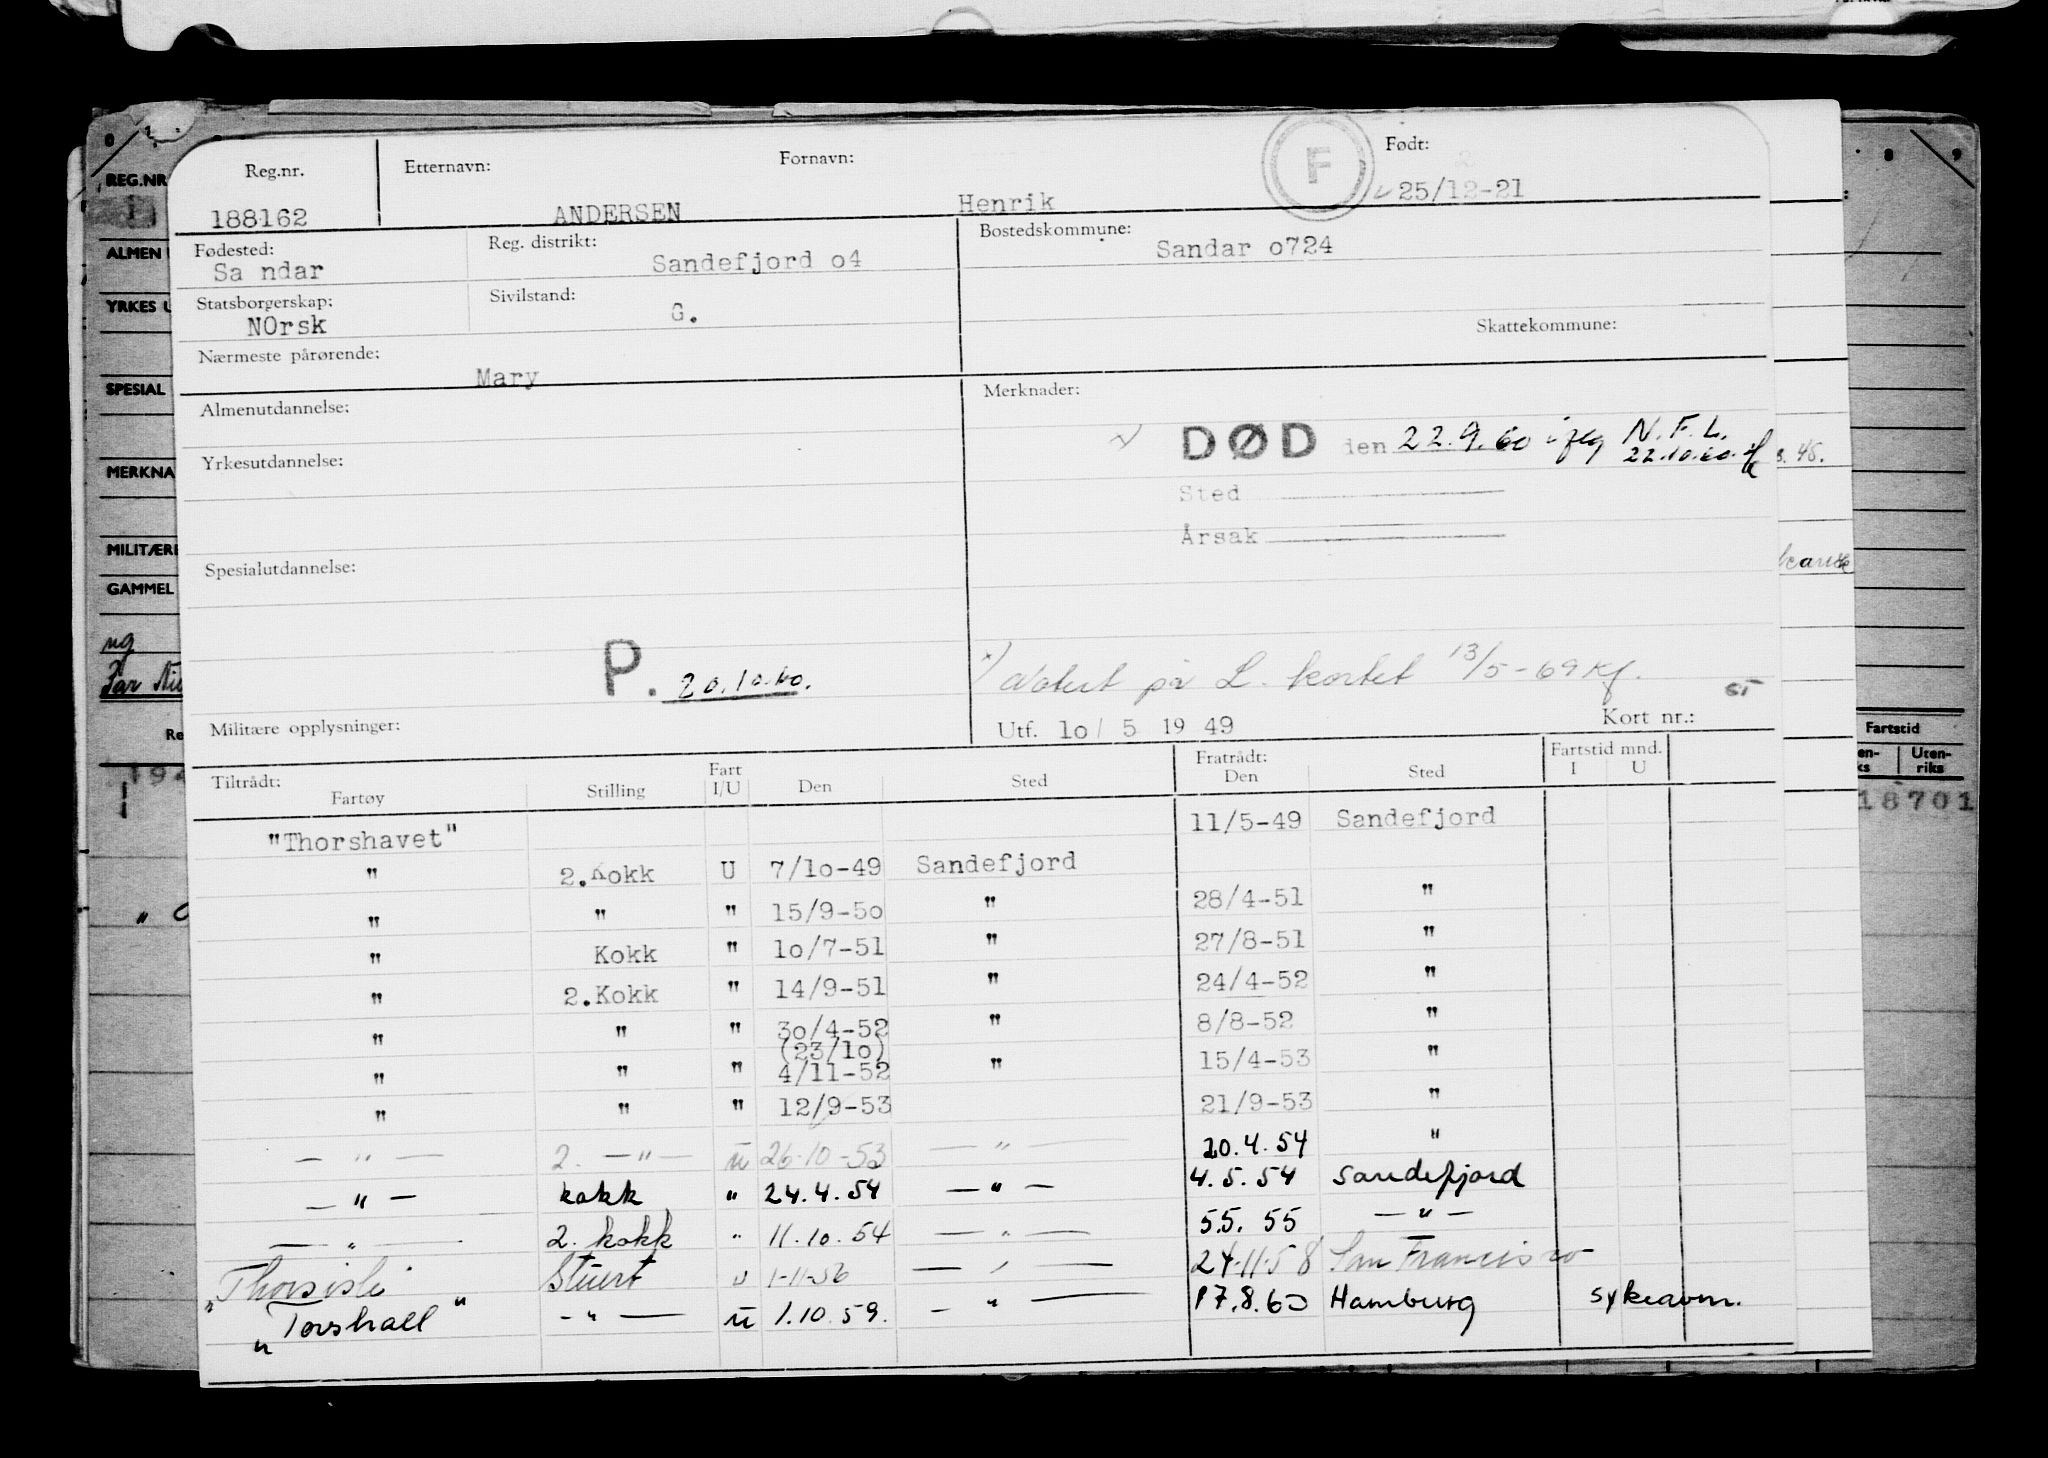 Reg.nr. Etternavn: Fornavn: F Født:
188162 ANDERSEN Henrik 25/12-21
Fødested: Reg. distrikt: Bostedskommune:
Sa ndar Sandefjord o4 Sandar o724
Statsborgerskap: Sivilstand:
NOrsk G.
Skattekommune:
Nærmeste pårørende:
Mary
Almenutdannelse: Merknader:
DØD den 22.9.60 N.F.L.
22.10.60.
Yrkesutdannelse:
Sted
Årsak
Spesialutdannelse:
P. 20.10.60.
x) Notert på L. kortet 13/5-69 Kf.
Militære opplysninger: Utf. lo/ 5 19 49 Kort nr.:
Tiltrådt: Fratrådt: Fartstid mnd.
Fartøy Stilling Fart I/U Den Sted Den Sted I U
"Thorshavet" 11/5-49 Sandefjord
" 2.Kokk U 7/lo-49 Sandefjord
" " " 15/9-5o " 28/4-51 "
" Kokk " lo/7-51 " 27/8-51 "
" 2.Kokk " 14/9-51 " 24/4-52 "
" " " 3o/4-52 " 8/8-52 "
(23/lo)
" " " 4/11-52 " 15/4-53 "
" " " 12/9-53 21/9-53 "
— " — 2. — " — u 26.10-53 — " — 20.4.54 "
— " — kokk " 24.4.54 — " — 4.5.54 Sandefjord
— " — 2. kokk " 11.10.54 — " — 5.5.55 — " —
"Thorsisle" Stuert u 1-11-56 — " — 24-11-58 San Francisco
"Torshall" — " — u 1.10.59. — " — 17.8.60 Hamburg sykeavm.
REG.NR
ALMEN
YRKES U
SPESIAL
MERKNA
MILITÆRE
GAMMEL
ug
Fartstid
Uten-
riks
18701